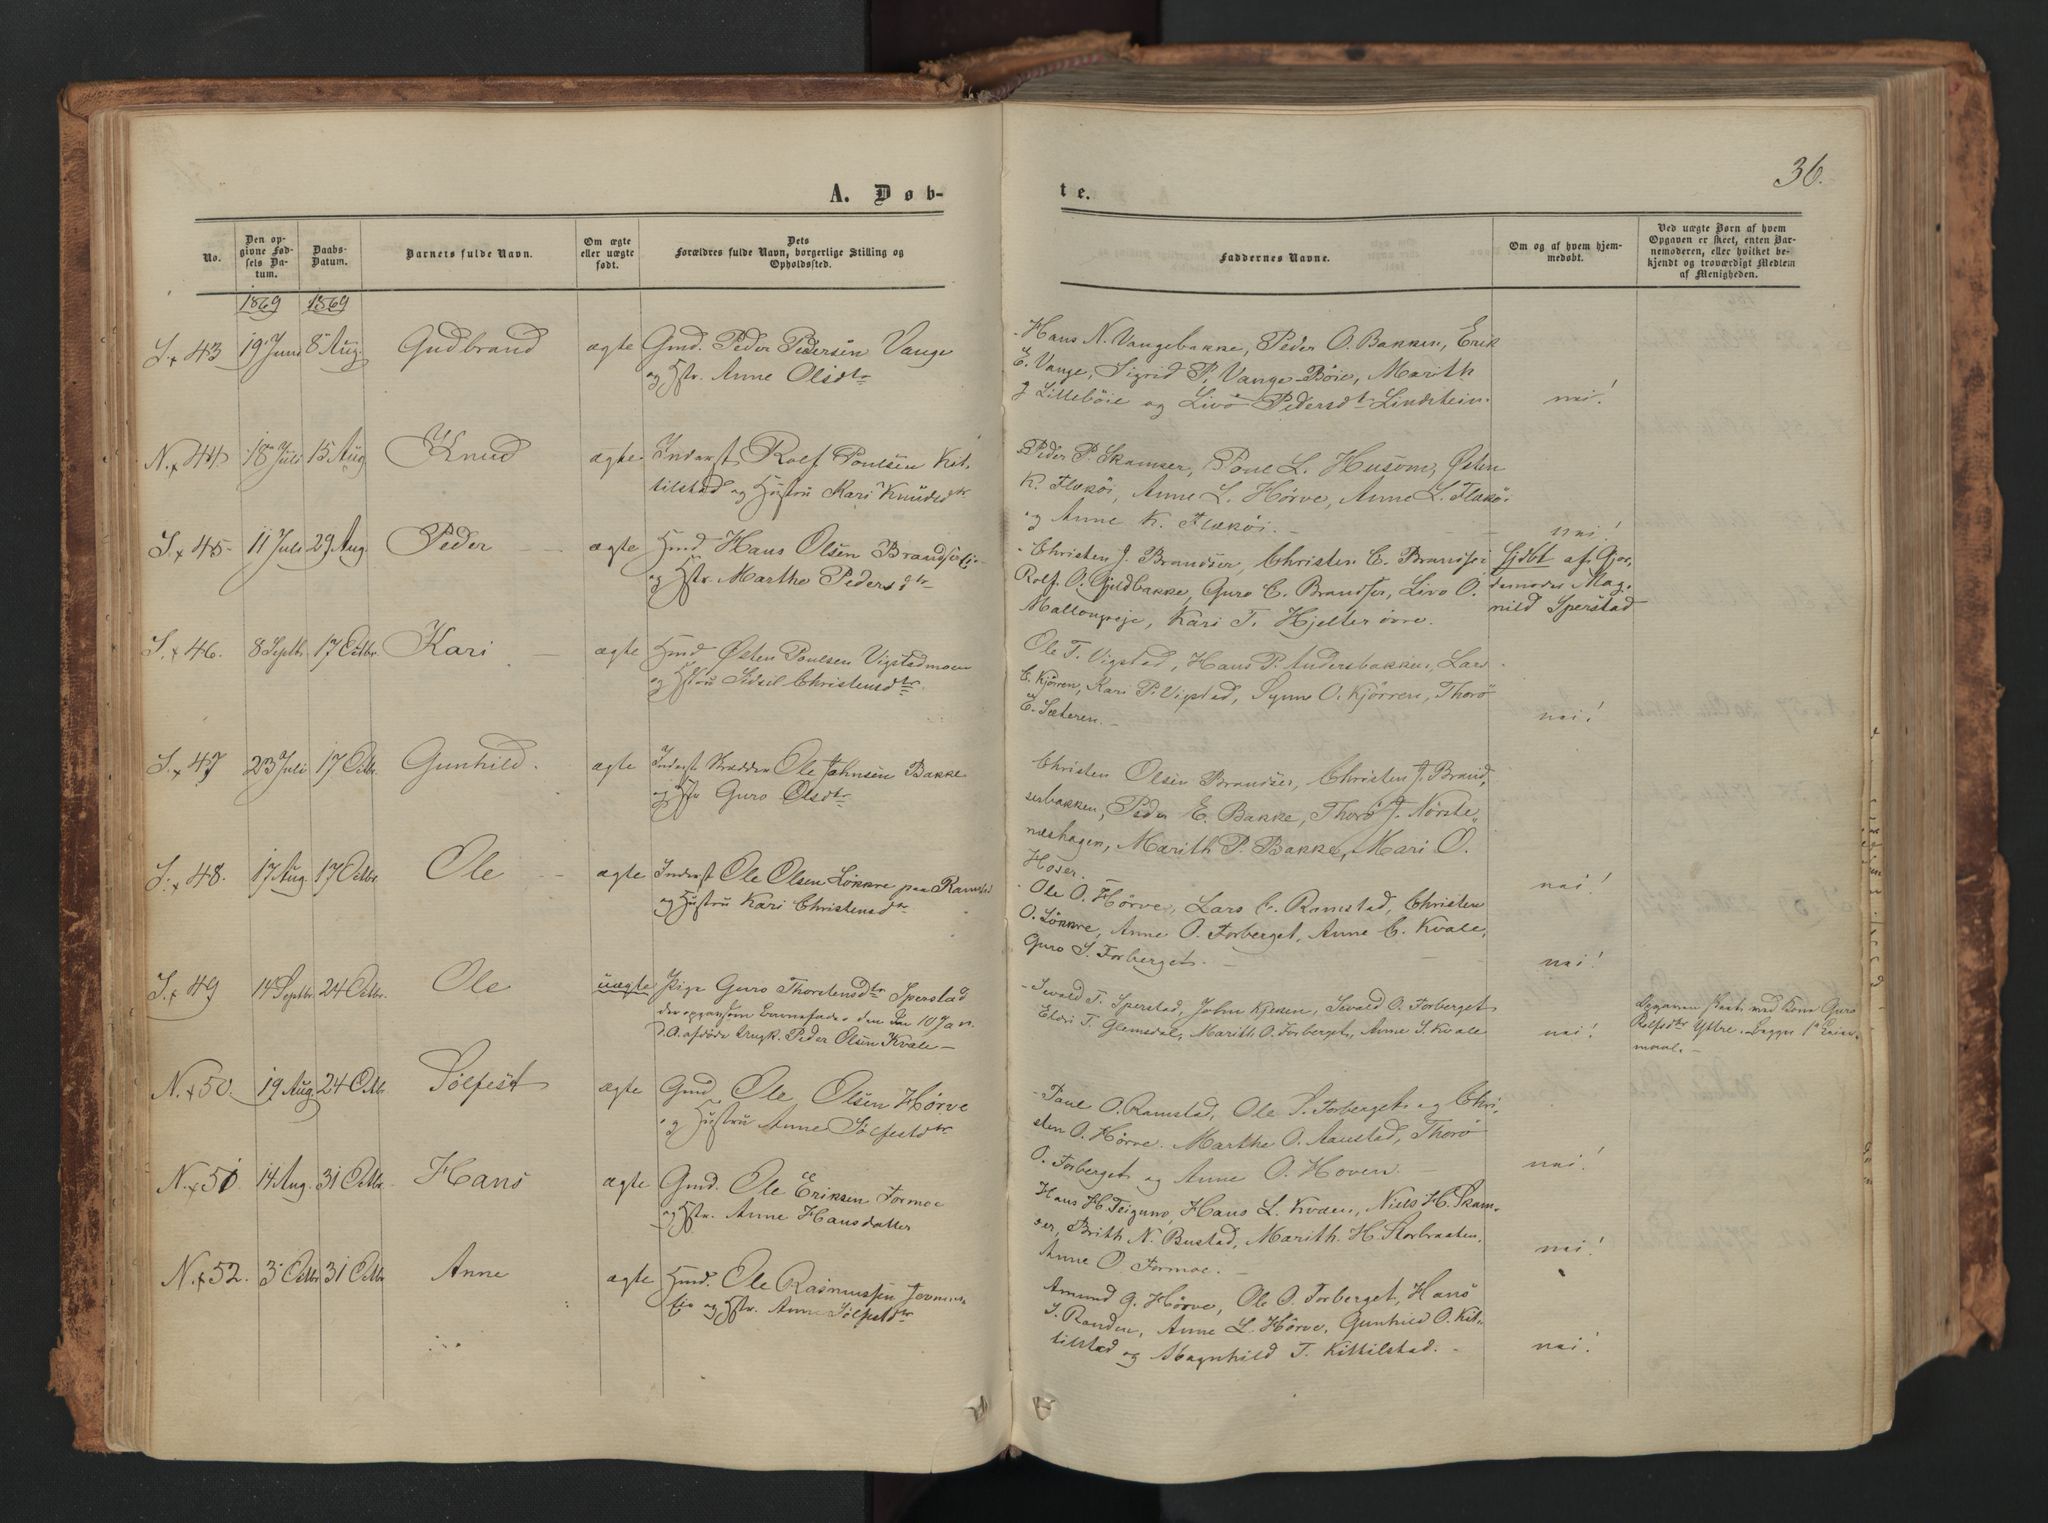 36.
A. Døb-
te.
No.
Den op-
givne Fød-
sels Da-
tum.
Daabs-
Datum.
Barnets fulde Navn.
Om ægte
eller uægte
født.
Dets
Forældres fulde Navn, borgerlige Stilling og
Opholdssted.
Faddernes Navne.
Om og af hvem hjem-
medøbt.
Ved uægte Børn af hvem
Opgaven er skeet, enten Bar-
nemoderen, eller hvilket be-
kjendt og troværdigt Medlem
af Menigheden.
1869 1869
S. x 43 19 Juni 8 Aug. Gudbrand ægte Gmd. Peder Pedersen Vange
og Hstr. Anne Olsdtr
Hans N. Vangebakke, Peder O. Bakken, Erik
E. Vange, Sigrid P. Vange-Böie, Marith
J Lillebøie og Livo Pedersdtr Lindstein. nei!
N. x 44. 18 Juli 15 Aug Knud ægte Inderst Rolf Poulsen Kit-
tilstad og Hustru Kari Knudsdtr
Peder P. Skamser, Poul L. Husom, Østen
K. Flækøi, Anne L. Hørve, Anne L. Flækøi
og Anne K. Flækøi. nei!
S. x 45. 11 Juli 29 Aug. Peder ægte Hmd Hans Olsen Brandserei
og Hstr. Marthe Pedersdtr
Christen J. Brandser, Christen C. Brandser
Rolf O. Gjeldbakke, Guro C. Brandser, Livo O.
Mallongseje, Kari T. Hjelter øvre.
hjdbt af Gjor-
demoder Mag-
nild Sperstad
S. x 46. 8 Septb. 17 Octbr. Kari ægte Hmd Østen Poulsen Vigstadmoen
og Hstru Sidsel Christensdtr.
Ole T. Vigstad, Hans P. Andersbakken, Lars
E. Kjörren, Kari P. Vigstad, Synne O. Kjörren, Thorö
E. Sæteren. nei!
S. x 47 23 Juli 17 Octbr. Gunhild. ægte Inderst Skrædder Ole Johnsen Bakke
og Hstr Guro Olsdtr
Christen Olsen Brandser, Christen J. Brand-
serbakken, Peder E. Bakke, Thorö J. Nörste-
næshagen, Marith P. Bakke, Mari O.
Höser. nei!
S. x 48. 17 Aug. 17 Octbr. Ole ægte Inderst Ole Olsen Løkkre paa Ramstad
og Hustru Kari Christensdtr
Ole O. Hörve, Lars C. Ramstad, Christen
O. Løkkre, Anne O. Forberget, Anne C. Kvale,
Guro S. Forberget. nei!
S. x 49 14 Septbr. 24 Octbr. Ole uægte Pige Guro Thorstensdtr Sperstad
der opgav som Barnefader den den 10 Jan.
d.A. afdøde Ungk. Peder Olsen Kvale
Sevald T. Sperstad, John Kjesen, Sevald O. Forberget
Eldri T. Glemsdal, Marith O. Forberget, Anne S. Kvale nei!
Opgaven skeet med Kone Guro
Rolfsdtr Yttre
N. x 50. 19 Aug. 24 Octbr Sølfest ægte Gmd. Ole Olsen Hörve
og Hustru Anne Sølfestdtr
Poul O. Ramstad, Ole S. Forberget og Chri-
sten O. Hörve. Marthe O. Aanstad, Thorö
O. Forberget og Anne O. Hoven nei!
N. x 51. 14 Aug. 31 Octbr. Hans ægte Gmd. Ole Eriksen Formoe
og Hstr. Anne Hansdatter
Hans H. Teigum, Hans L. Kvaen, Niels H. Skam-
ser, Brith N. Bustad, Marith H. Storbraaten,
Anne O. Formoe. nei!
N. x 52. 3 Octbr 31 Octbr Anne ægte Hmd. Ole Rasmussen
og Hstr. Anne Sölfestdtr
Amund G. Hörve, Ole O. Forberget, Hans
S. Randen, Anne L. Hörve, Gunhild O. Kit-
tilstad og Magnhild T. Kittilstad. nei!